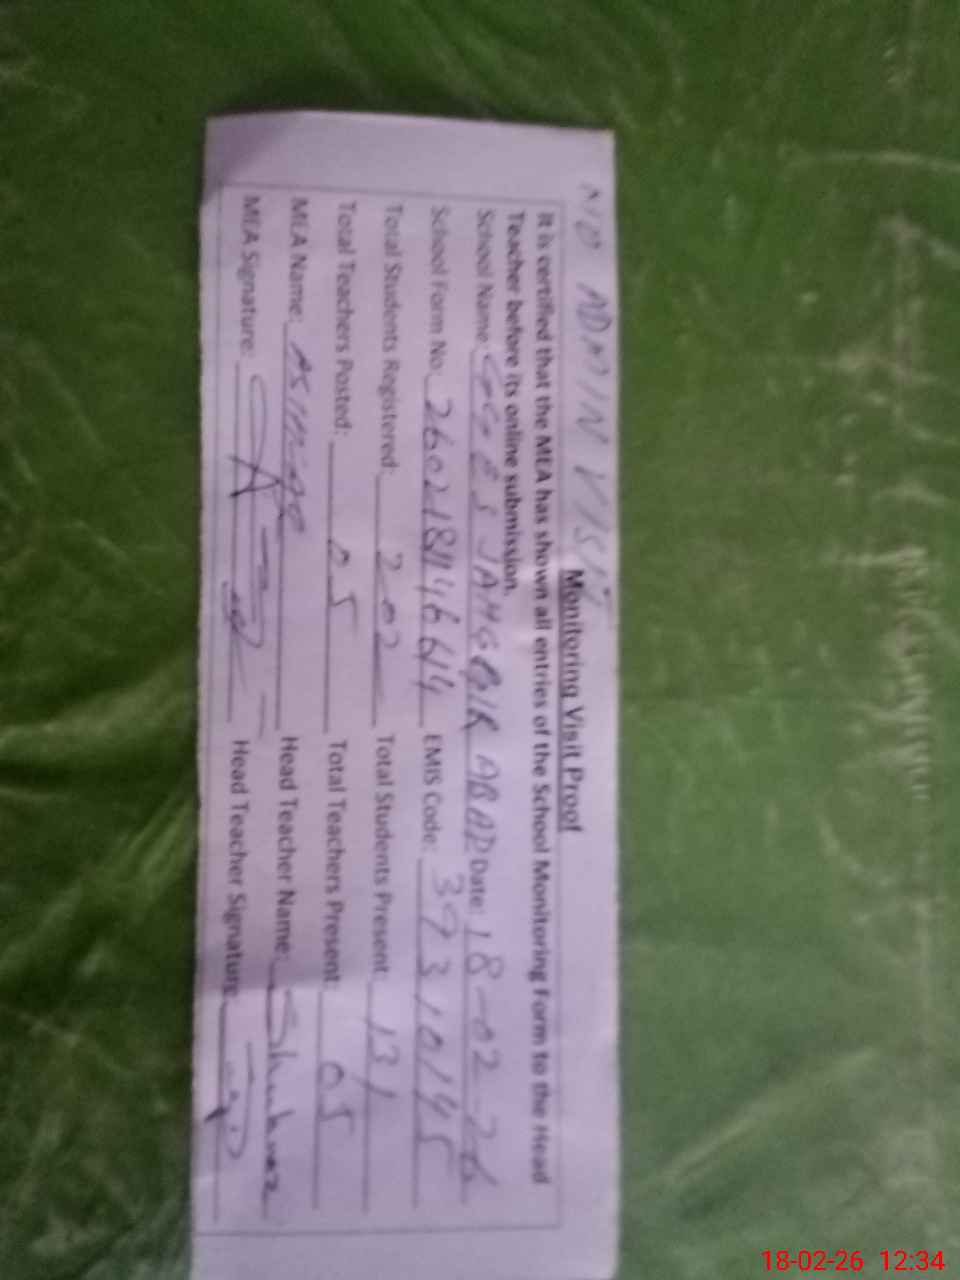 NO ADMIN VISIT
Monitoring Visit Proof
It is certified that the MEA has shown all entries of the School Monitoring Form to the Head
Teacher before its online submission.
School Name: GGES JAHGGIR ABAD Date: 18-02-26
School Form No. EMIS Code: 39310145
Total Students Registered: 202 Total Students Present: 131
Total Teachers Posted: 05 Total Teachers Present: 05
MEA Name: Head Teacher Name:
MEA Signature: Head Teacher Signature:
18-02-26 12:34